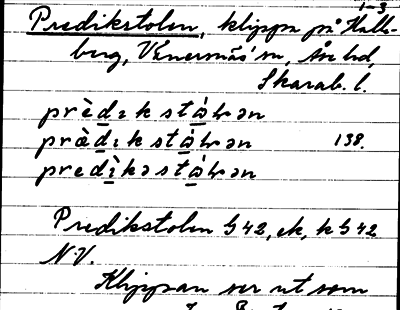 1-3
Predikstolen, klippa på Halle-
berg, Vänersnäs sn, Åse hd,
Skarab. l.
prèdıkstálən
pràdıkstálən 138.
predìkəstálən
Predikstolen G42, ek, k G42
N.V.
Klippan ser ut som